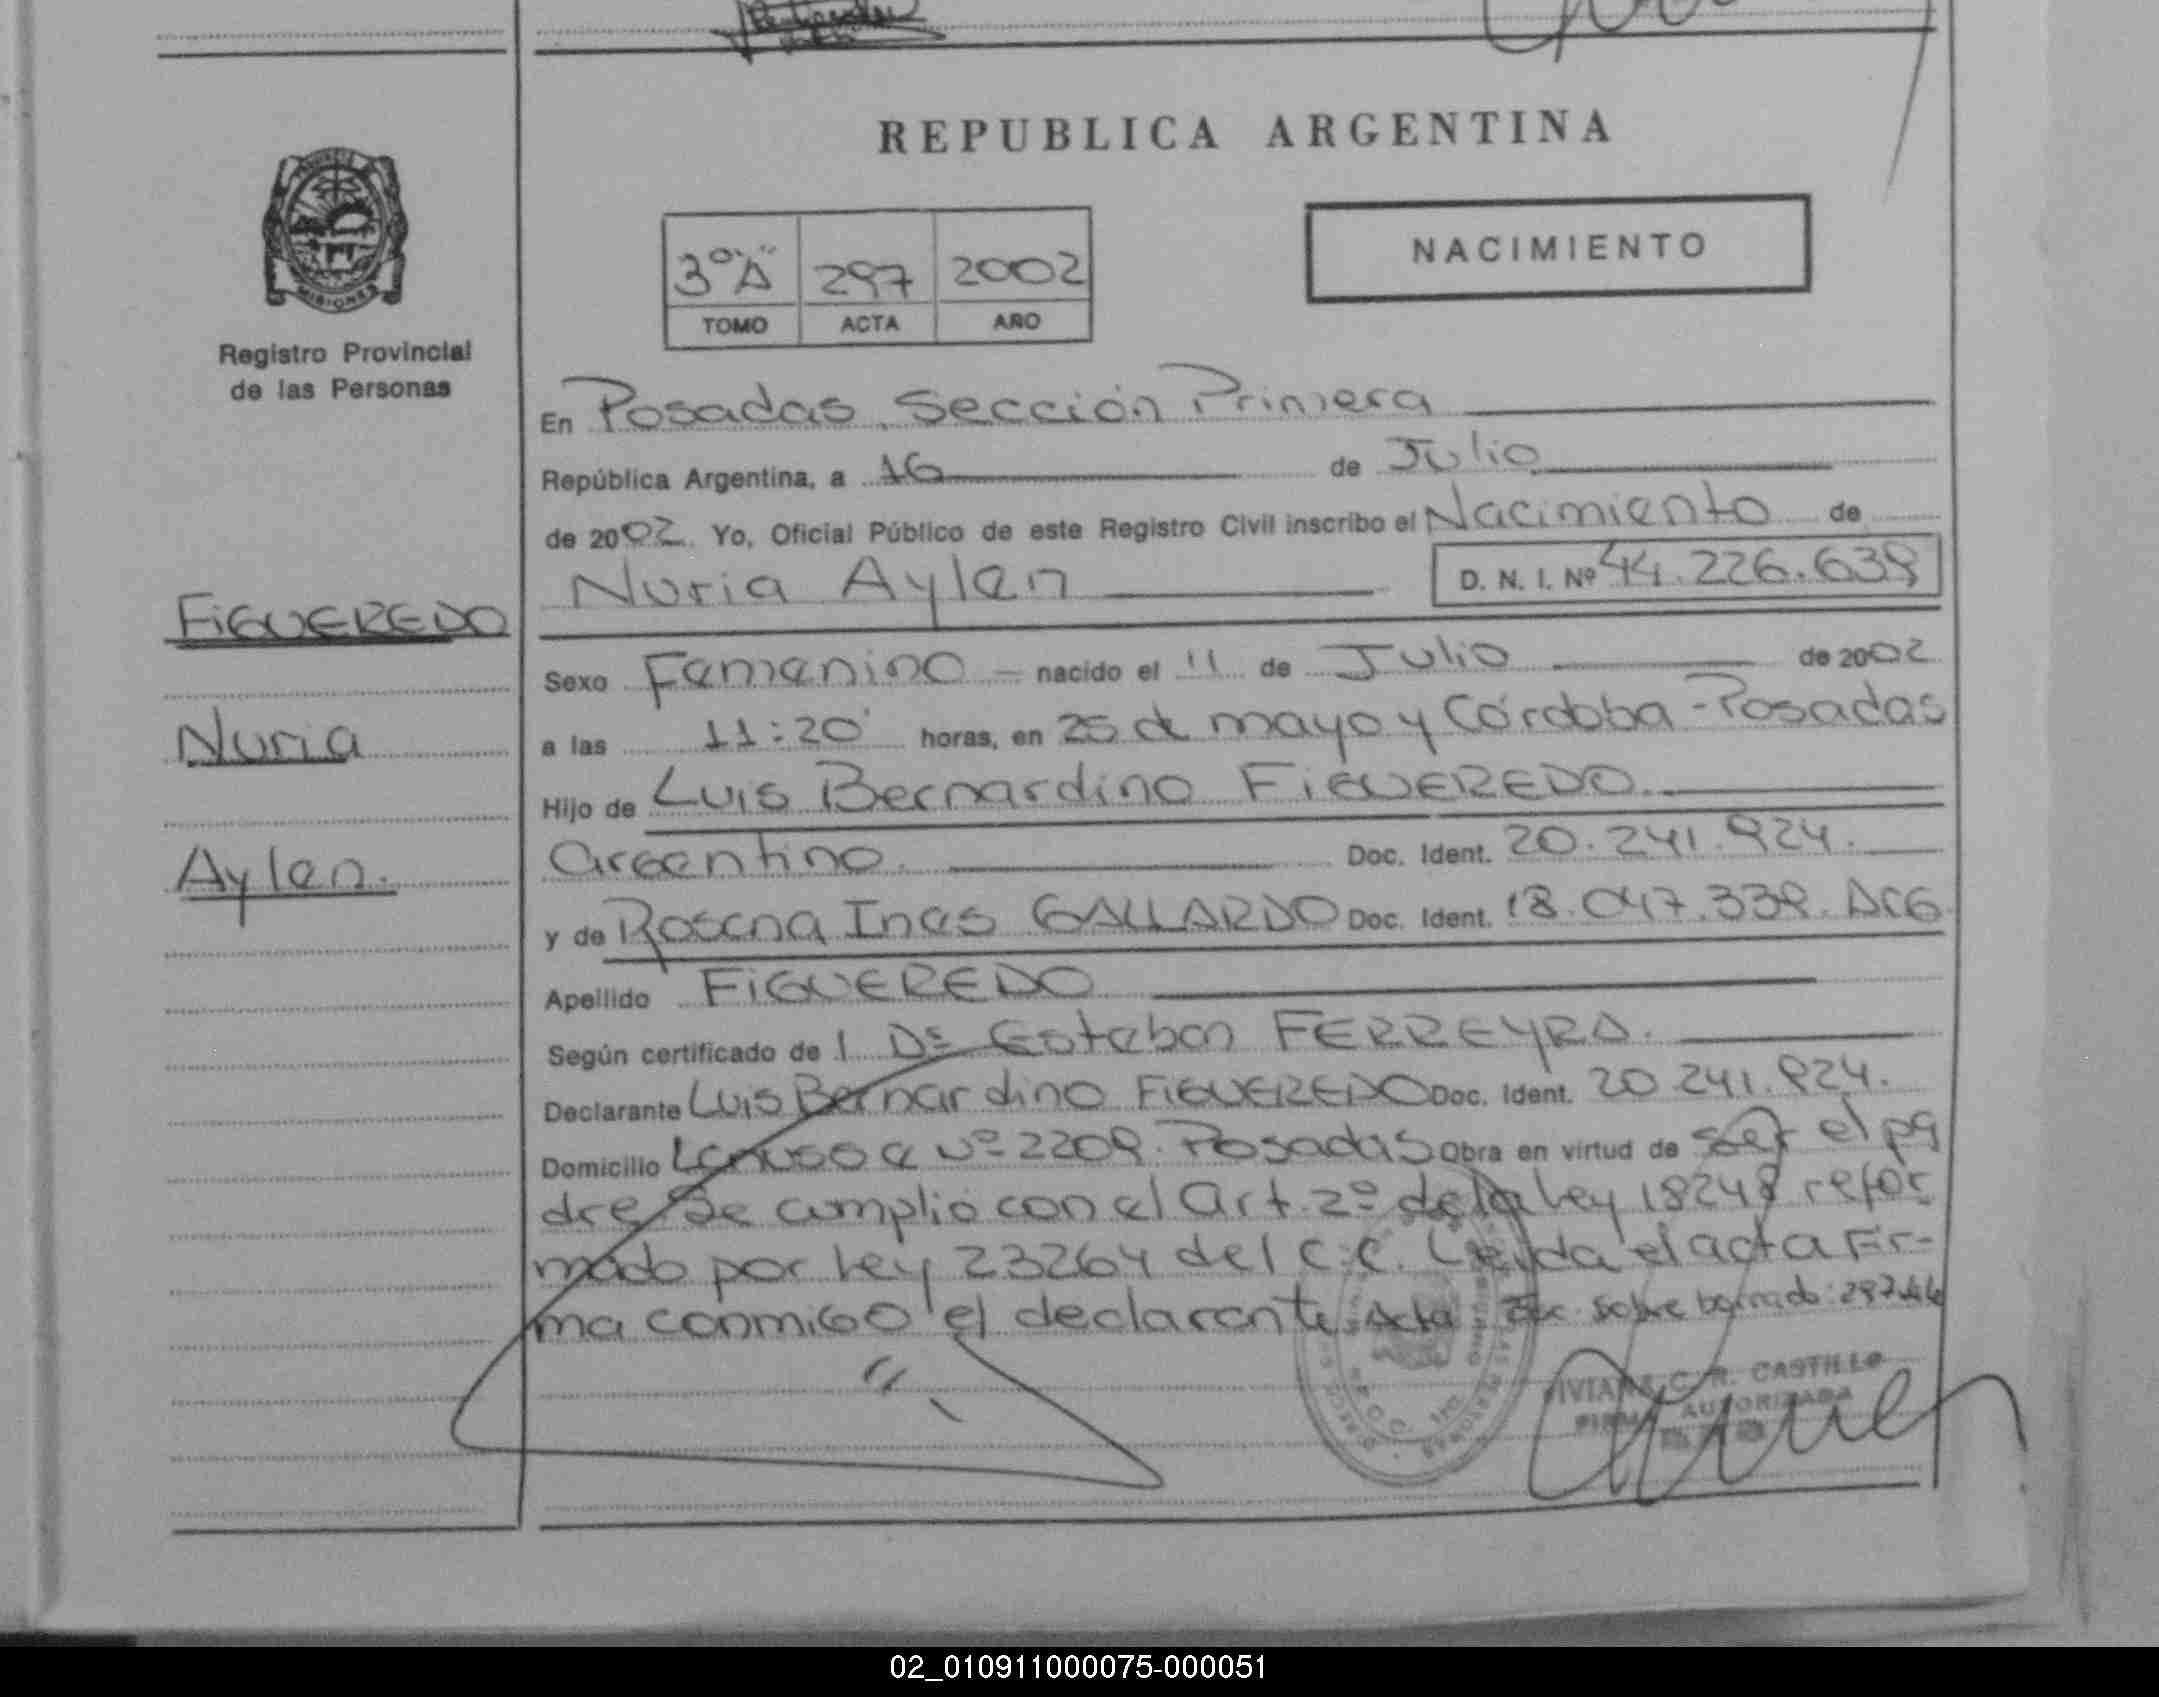 REPUBLICA ARGENTINA
MISIONES
Registro Provincial
de las Personas
3º "A" 297 2002
TOMO ACTA AÑO
NACIMIENTO
En Posadas, Sección Primera
República Argentina, a 16 de Julio
de 2002. Yo, Oficial Público de este Registro Civil inscribo el Nacimiento de
Nuria Aylen D. N. I. Nº 44.226.639
FIGUEREDO
Nuria
Aylen.
Sexo Femenino nacido el 11 de Julio de 2002
a las 11:20 horas, en 25 de mayo y Córdoba - Posadas
Hijo de Luis Bernardino FIGUEREDO.
argentino. Doc. Ident. 20.241.924.
y de Rosana Ines GALLARDO Doc. Ident. 18.047.339. Arg
Apellido FIGUEREDO
Según certificado de l Dr Esteban FERREYRA.
Declarante Luis Bernardino FIGUEREDO Doc. Ident. 20.241.924.
Domicilio Lanusse Nº 2209. Posadas Obra en virtud de ser el pa
dre. Se cumplio con el art. 2º de la Ley 18248 refor
mado por Ley 23264 del C.C. Leida el acta Fir-
ma conmigo el declarante. Acta sobre borrado: 297
VIVIANA C. R. CASTILLO
FIRMA AUTORIZADA
02_010911000075-000051